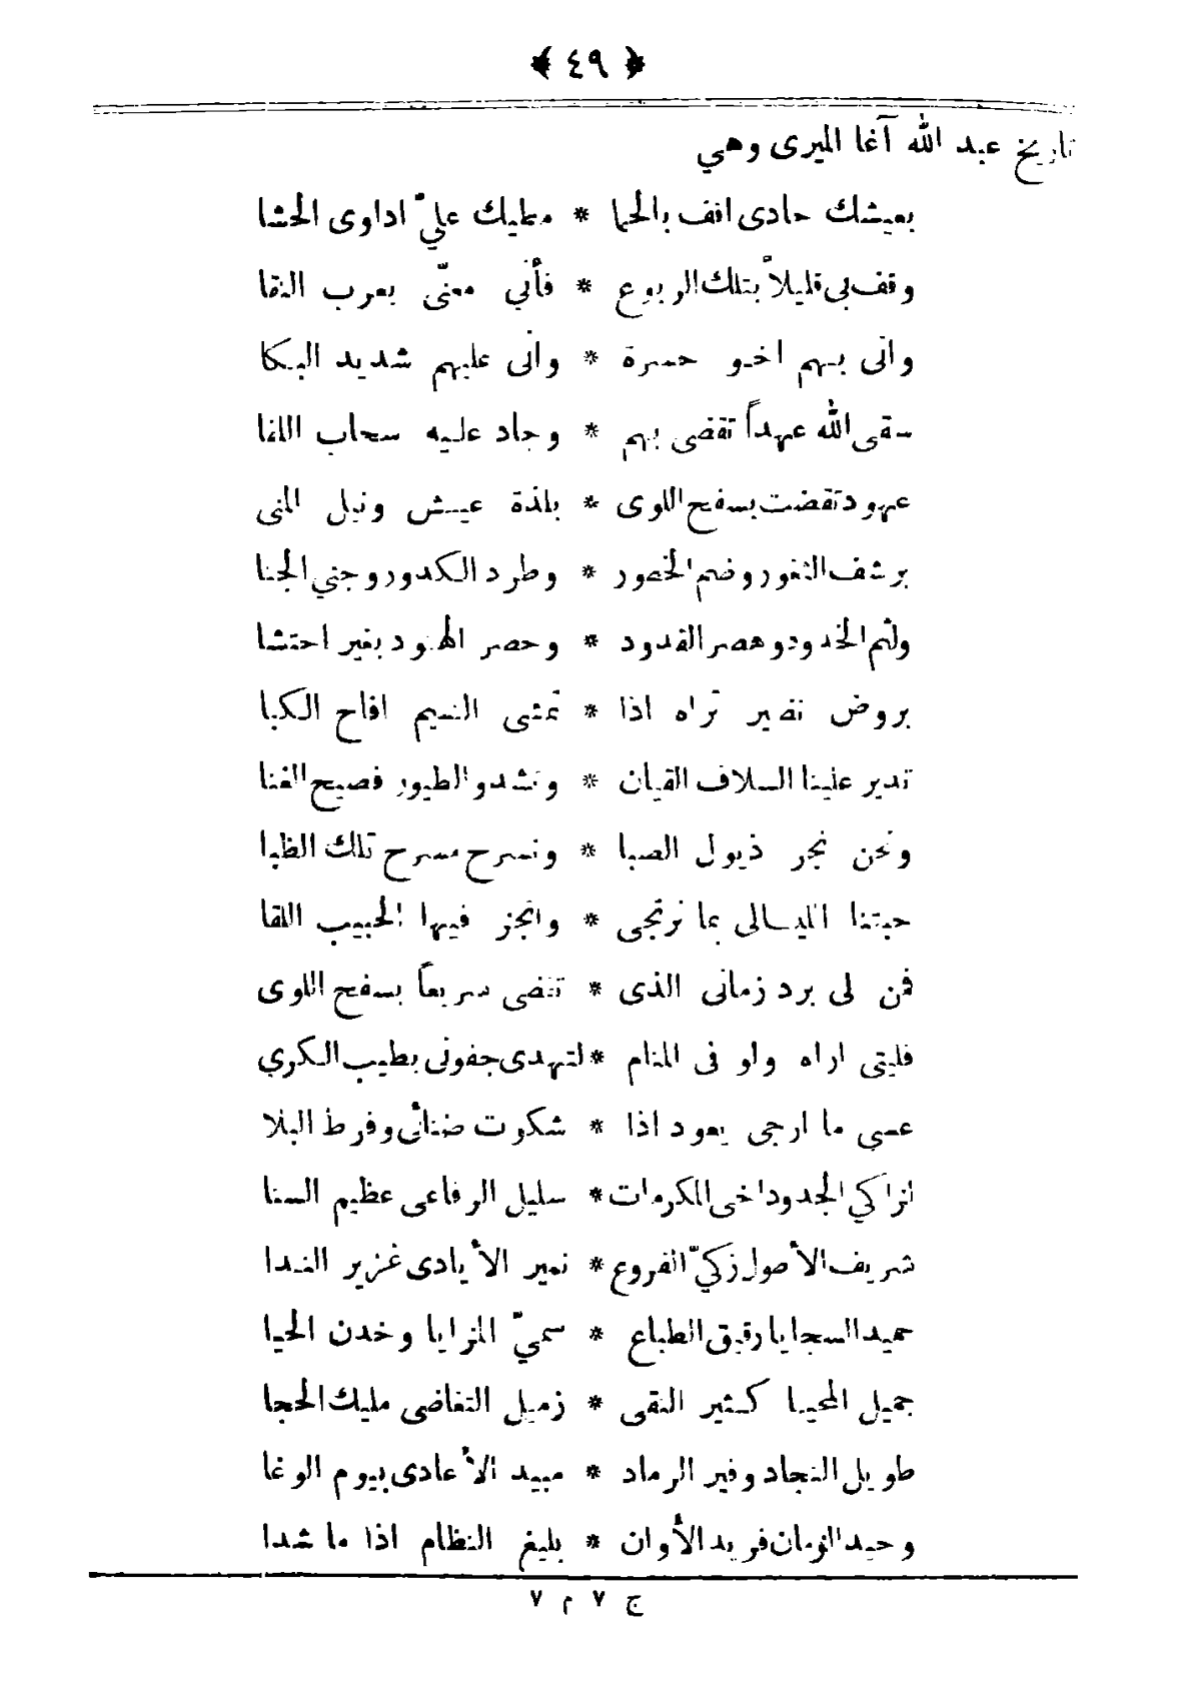 ﴿ ٤٩ ﴾
تاريخ عبد الله آغا الميرى وهي
بعيشك حادى انف بالحيا * مطيك عليّ اداوى الحشا
وقف بى قليلاً بتلك الربوع * فأني معنّى بعرب النقا
وانى بهم اخو حسرة * وانى عليهم شديد البكا
سقى الله عهداً تقضى بهم * وجاد عليه سحاب اللقا
عهود تقضت بسفح اللوى * بلذة عيش ونيل المنى
برشف الثغور وضم الخصور * وطرد الكدور وجني الجنا
ولثم الخدود وهصر القدود * وحصر الهنود بغير احتشا
بروض نضير تراه اذا * تمشى النسيم افاح الكبا
تدير علينا السلاف القيان * وتشدو الطيور فصيح الغنا
ونحن نجر ذيول الصبا * ونسرح مسرح تلك الظبا
حبتنا الليالى بما نرتجى * وانجز فيها الحبيب اللقا
فمن لى برد زمانى الذى * تقضى سريعاً بسفح اللوى
فليتى اراه ولو فى المنام * لتهدى جفونى بطيب الكري
عسى ما ارجى يعود اذا * شكوت ضنائى وفرط البلا
لزاكي الجدود اخى المكرمات * سليل الرفاعى عظيم السنا
شريف الأصول زكيّ الفروع * نمير الأيادى غزير الندا
حميد السجايا رقيق الطباع * سميّ المزايا وخدن الحيا
جميل المحيا كثير التقى * زميل التغاضى مليك الحجا
طويل النجاد وفير الرماد * مبيد الأعادى بيوم الوغا
وحيد الزمان فريد الأوان * بليغ النظام اذا ما شدا
ج ٧ م ٧